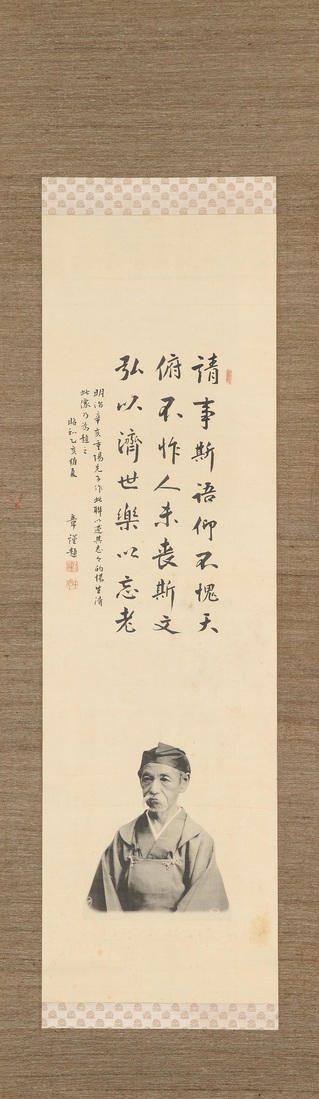 請事斯語仰不愧天
俯不怍人未喪斯文
弘以濟世樂以忘老
明治辛亥重陽先子作此聯以述其志今的場生濟
此像乃為題之
昭和乙亥 夏
章謹題